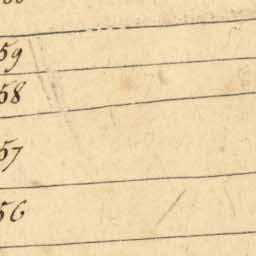 59
58
57
56